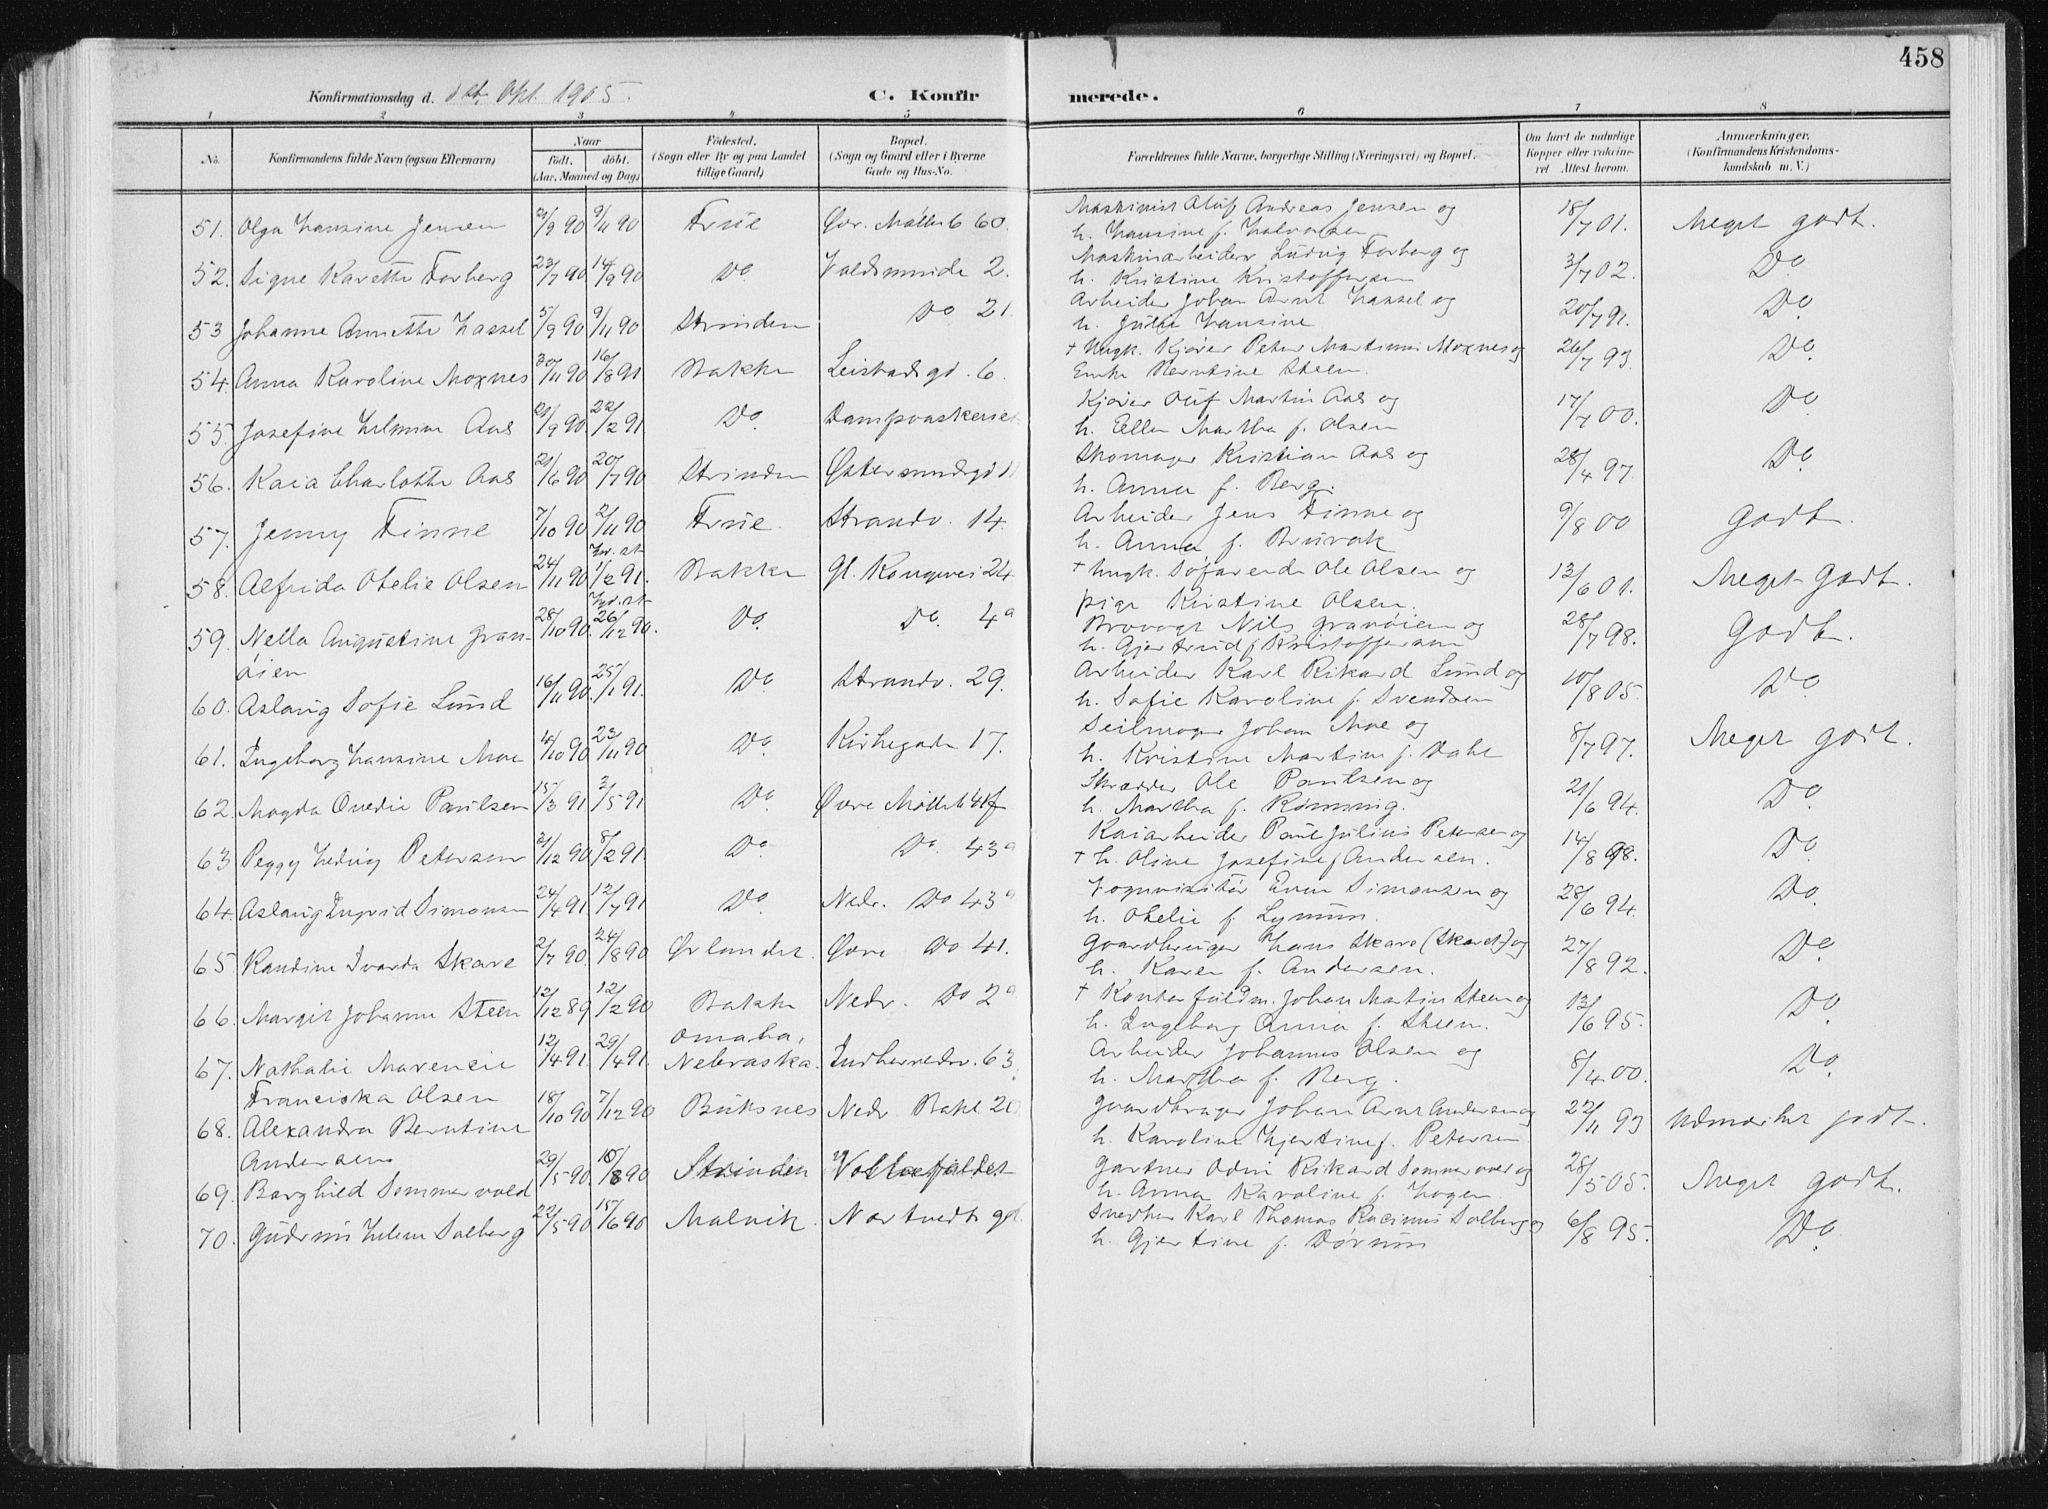 458
Konfirmationsdag d. Okt. 1905.
C. Konfirmerede.
1 2 3 4 5 6 7 8
No. Konfirmandens fulde Navn (ogsaa Efternavn) Naar født. døbt. (Aar, Maaned og Dag) Fødested. (Sogn eller By og paa Landet tillige Gaard) Bopæl. (Sogn og Gaard eller i Byerne Gade og Hus-No. Forældrenes fulde Navne, borgerlige Stilling (Næringsvei) og Bopæl. Om havt de naturlige Kopper eller vaccineret Attest herom. Anmærkninger. (Konfirmandens Kristendomskundskab m. V.)
51. Olga Hansine Jensen 21/9 90 9/11 90 Frue Øvr. Møllb 60. Maskinist Oluf Andreas Jensen og
h. Hansine f. Halvorsen 18/7 01. Meget godt.
52. Signe Karette Forberg 23/7 90 14/9 90 Do Voldsminde 2. Maskinarbeider Ludvig Forberg og
h. Kristine Kristoffersen 3/7 02. Do
53 Johanne Annette Hassel 5/9 90 9/11 90 Strinden Do 21. Arbeider Johan Arnt Hassel og
h. Julie Hansine 20/7 91. Do
54. Anna Karoline Moxnes 30/11 90 16/8 91 Bakke Leistadsgd. 6. + Ungk. Kjører Peter Martinus Moxnes og
Enke Berntine Steen. 26/7 93. Do
55. Josefine Helmine Aas 21/9 90. 22/2 91 Do. Dampvaskeriet Kjører Oluf Martin Aas og
h. Ellen Martha f. Olsen 17/7 00. Do
56. Kaia Charlotte Aas 21/6 90 20/7 90 Strinden Østersundsgd 11 Skomager Kristian Aas og
h. Anna f. Berg. 28/4 97. Do
57. Jenny Finne 7/10 90 2/11 90 Frue. Strandv. 14. Arbeider Jens Finne og
h. Anna f. Bruvok 9/8 00 Godt.
58. Alfrida Otelie Olsen 24/11 90 1/2 91. Bakke Gl. Kongevei 24 + Ungk. Søfarende Ole Olsen og
pige Kristine Olsen. 13/6 01. Meget Godt.
59. Nella Augustine Gran-
øien 28/10 90. 26/12 90. Do. Do. 4a Brovagt Nils Granøien og
h. Gjertrud f. Kristoffersen 28/7 98. Godt.
60. Aslaug Sofie Lund 16/11 90. 25/1 91. Do Strandv. 29. Arbeider Karl Rikard Lund og
h. Sofie Karoline f. Svendsen 10/8 05. Do
61. Ingeborg Hansine Moe 4/10 90 23/11 90 Do Kirkegade 17. Seilmager Johan Moe og
h. Kristine Martine f. Dahl 8/7 97. Meget godt.
62. Magda Ovedie Paulsen 15/3 91 3/5 91 Do Øvre Møllb 41f Skrædder Ole Paulsen og
h. Martha f. Rønning. 21/6 94. Do
63 Peggy Hedvig Petersen 31/12 90 8/2 91. Do Do. 43a Kaiarbeider Paul Julius Petersen og
+ h. Oline Josefine f. Andersen. 14/8 98. Do
64. Aslaug Ingrid Simonsen 24/4 91 12/7 91 Do Nedr. Do 43a Vognvisitør Even Simonsen og
h. Otelie f. Lynum. 28/6 94. Do
65. Randine Ivarda Skare 2/7 90. 24/8 90 Ørlandet. Øvre Do 41. Gaardbruger Hans Skare (Skaret) og
h. Karen f. Andersen. 27/8 92. Do
66. Margit Johanne Steen 12/12 89 12/2 90 Bakke Nedr. Do 2a + Kontorfuldm. Johan Martin Steen og
h. Ingeborg Anna f. Steen. 13/6 95. Do
67. Nathalie Marencie
Franciska Olsen 12/4 91. 29/4 91. Omaha,
Nebraska. Indherredsv. 63. Arbeider Johannes Olsen og
h. Martha f. Berg. 8/4 00. Do
68. Alexandra Berntine
Andersen 18/10 90 7/12 90 Buksnes Nedr Bakl 20 Gaardbruger Johan Arnt Andersen og
h. Karoline Hjertine f. Petersen 22/11 93 Udmærket godt.
69. Borghild Sommervold 29/5 90. 10/8 90 Strinden Vollafaldet Gartner Odin Rikard Sommervold og
h. Anna Karoline f. Hogen 28/5 05. Meget Godt.
70. Gudrun Helene Solberg 22/5 90 15/6 90 Malvik. Nortvedtsgd. Snedker Karl Thomas Rasinus Solberg og
h. Gjertine f. Dørum 6/8 95. Do